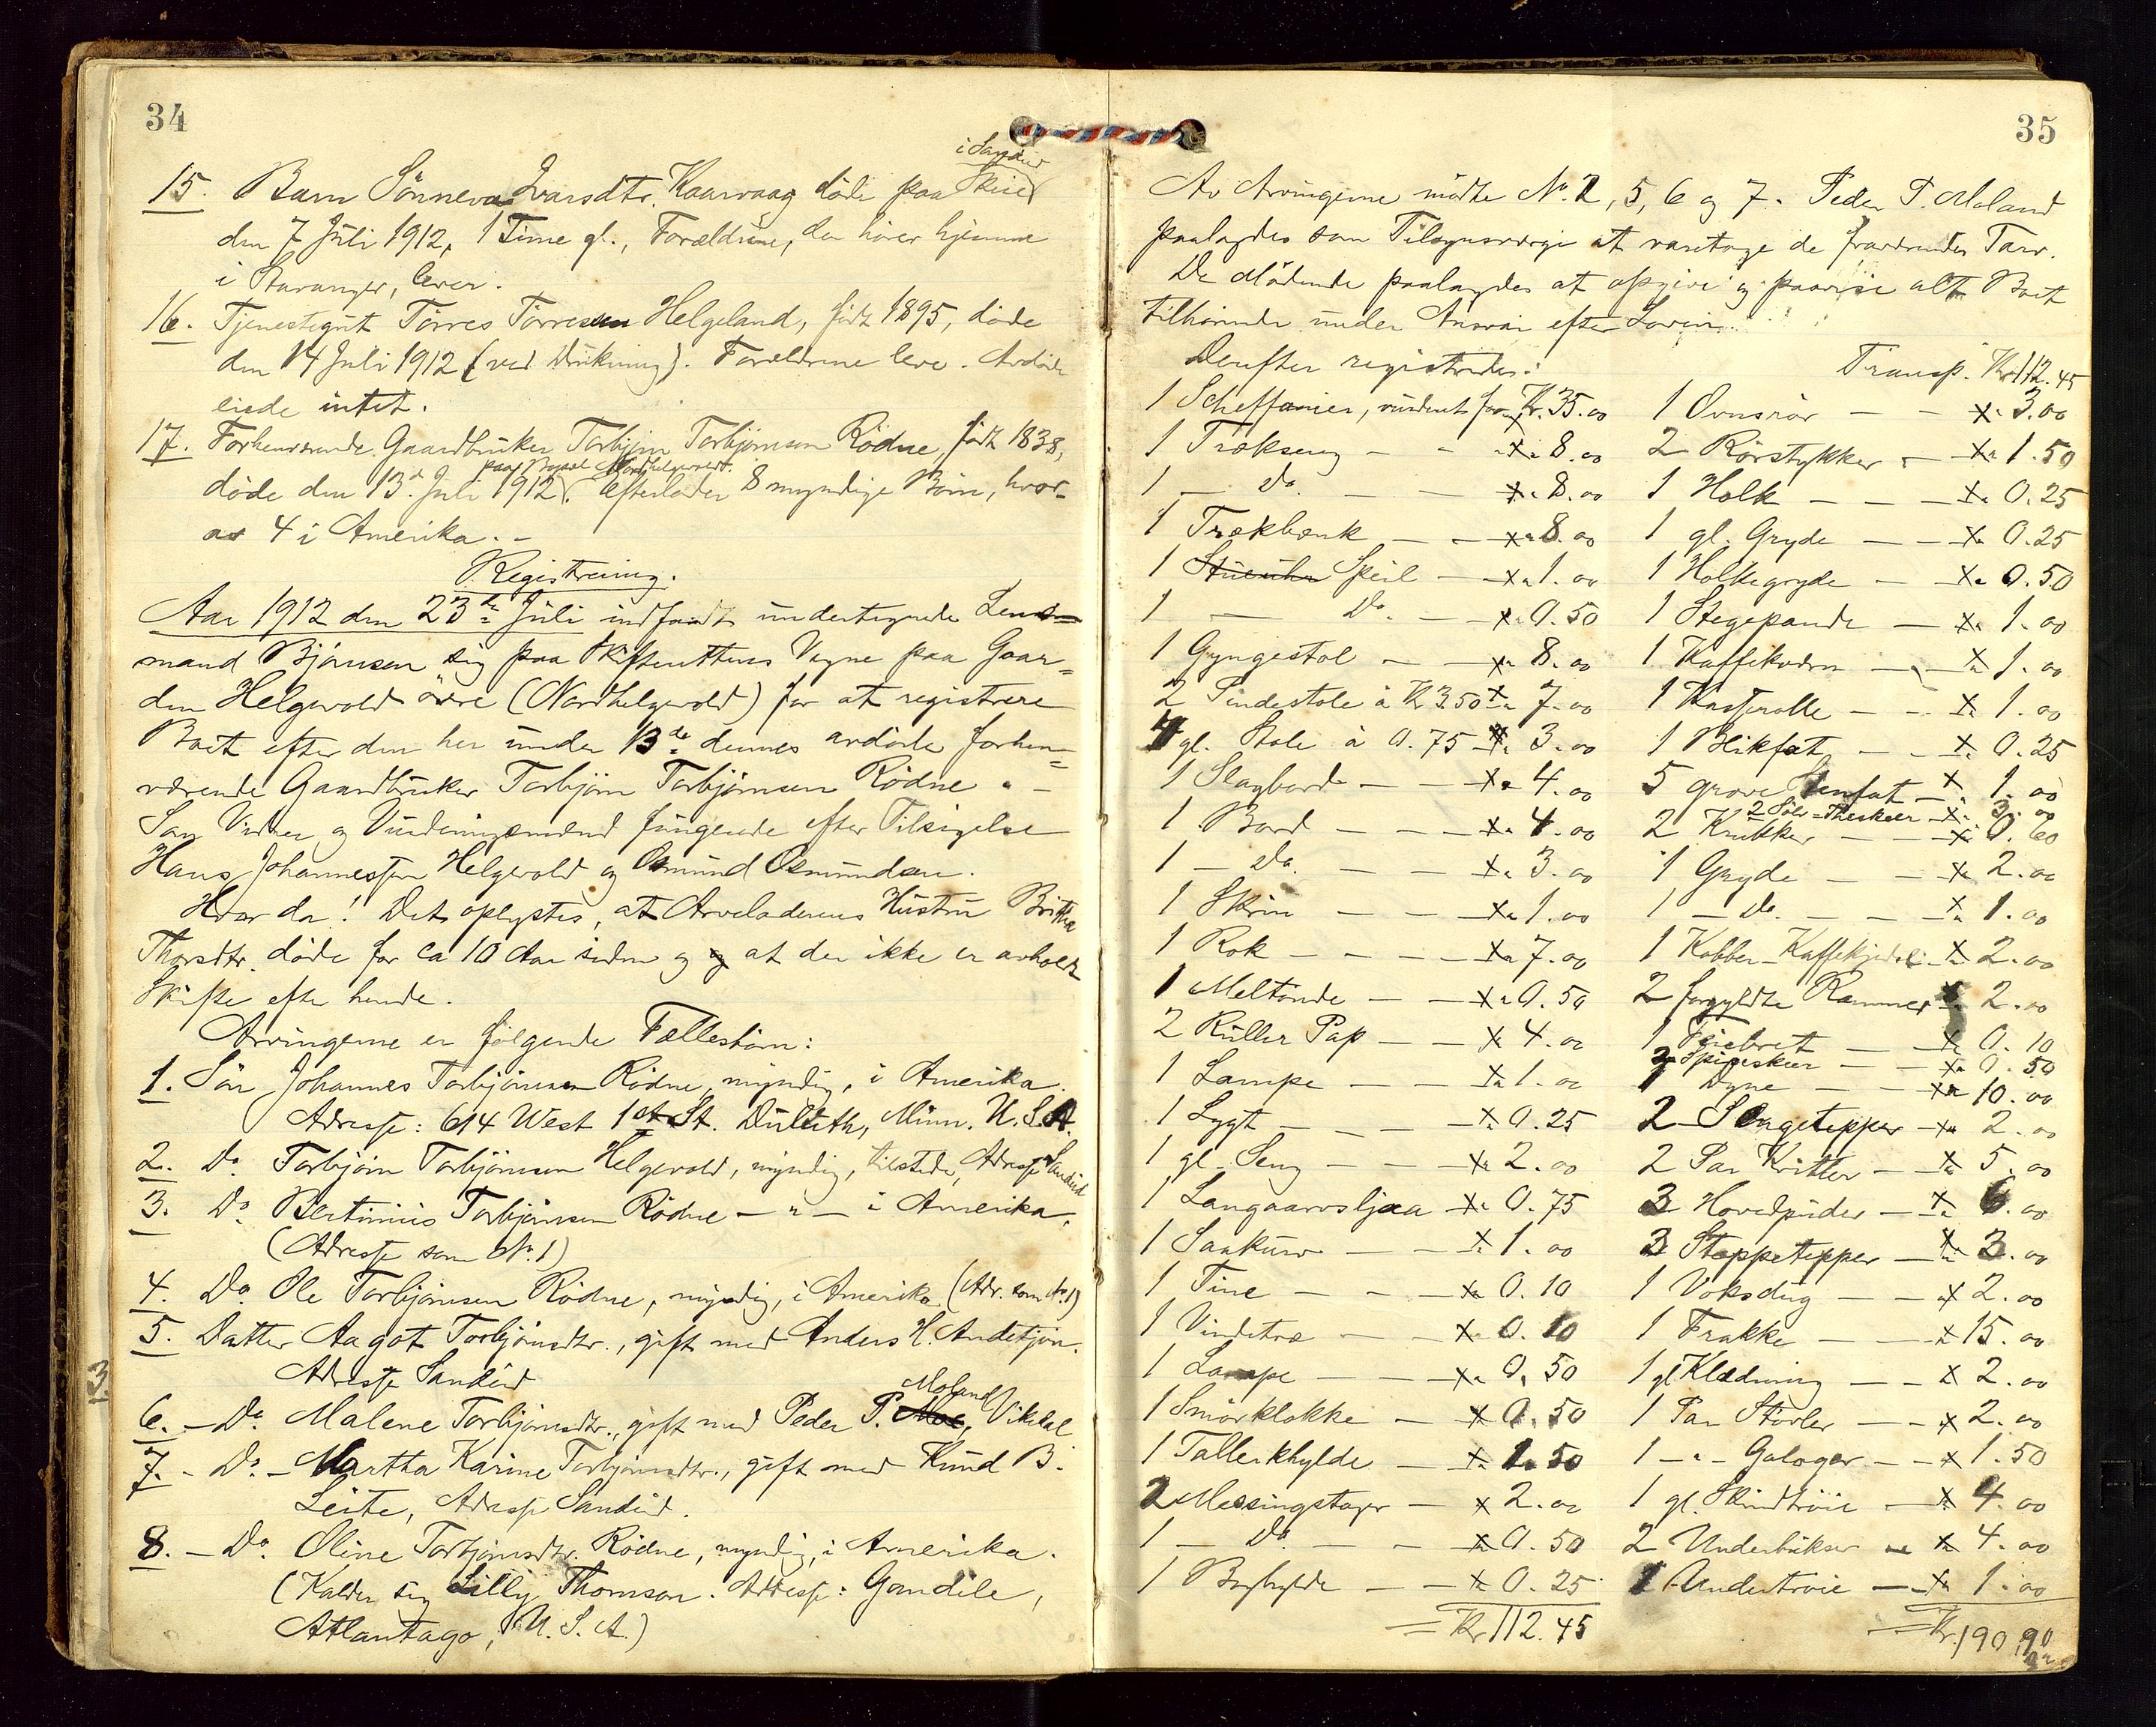 34
i Sandeid
15. Barn Sönneva Ivarsdtr. Kaarvaag döde paa Skiæ
den 7 Juli 1912, 1 Time gl., Forældrene, der hører hjemme
i Stavanger, lever.
16. Tjenestegut Törres Törresen Helgeland, födt 1895, döde
den 14 Juli 1912 (ved Drukning). Forældrene leve. Avdöde
eiede intet.
17. Forhenværende Gaardbruker Torbjörn Torbjörnsen Rödne, födt 1838,
paa Nordhelgevold
döde den 13de Juli 1912. Efterlader 8 myndige Börn, hvor-
av 4 i Amerika. -
Registrering.
Aar 1912 den 23de Juli indfandt undertegnede Lens-
mand Björnsen sig paa Skifterettens Vegne paa Gaar-
den Helgevold övre (Nordhelgevold) for at registrere
Boet efter den her under 13de dennes avdöde forhen-
værende Gaardbruker Torbjörn Torbjörnsen Rödne -
Som Vidner og Vurderingsmænd fungerede efter Tilsigelse
Hans Johannessen Helgevold og Osmund Osmundsen.
Hvor da! Det oplystes, at Arveladerens Hustru Brittha
Thorsdtr. döde for ca 10 Aar siden og at der ikke er avholdt
Skifte efter hende.
Arvingerne er fölgende Fællesbörn:
1. Sön Johannes Torbjörnsen Rödne, myndig, i Amerika.
Adresse: 614 West 1st St. Duluth, Minn. U.S.A.
2. Do Torbjörn Torbjörnsen Helgevold, myndig, tilstede, Adresse Sandeid
3. Do Bertinius Torbjörnsen Rödne - " - i Amerika.
(Adresse som No. 1)
4. Do. Ole Torbjörnsen Rödne, myndig, i Amerika (Adr. som No 1)
5. Datter Aagot Torbjörnsdtr., gift med Anders H. Andetjön.
Adresse Sandeid
Moland
6. - Do. Malene Torbjörnsdtr., gift med Peder P. Moe, Vikdal
7. - Do. - Martha Karine Torbjörnsdtr., gift med Knud B.
Leite, Adresse Sandeid.
8. - Do. Oline Torbjörnsdtr. Rödne, myndig, i Amerika.
(Kalder sig Lilly Thomson. Adresse: Gandele,
Atlantago, U.S.A.)
3.
35
Av Arvingerne mödte No. 2, 5, 6 og 7. Peder P. Moland
paalagdes som Tilsynsværge at varetage de fraværendes Tarv.
De Mödende paalagdes at opgive og paavise alt Boet
tilhörende under Ansvar efter Loven.
Derefter registredes:
1 Scheffonier, vurderet for Kr. 35.00
1 Trækseng - - " 8.00
1 - Do. - - " 8.00
1 Trækbænk - - " 8.00
1 Stueuhr Speil - " 1.00
1 - Do. - " 0.50
1 Gyngestol - - " 8.00
2 Pindestole à Kr 3.50 " 7.00
4 gl. Stole à 0.75 " 3.00
1 Slagbord - - " 4.00
1 Bord - - - " 4.00
1 - Do. - - " 3.00
1 Skrin - - - " 1.00
1 Rok - - - - " 7.00
1 Meltönde - - " 0.50
2 Ruller Pap - - " 4.00
1 Lampe - - " 1.00
1 Lygt - - - " 0.25
1 gl. Seng - - " 2.00
1 Langaarvsljaa - " 0.75
1 Saakurv - - " 1.00
1 Tine - - - " 0.10
1 Vindetræ - - " 0.10
1 Lampe - - " 0.50
1 Smörklokke - " 0.50
1 Tallerkhylde - " 1.50
2 Messingstager - " 2.00
1 - Do. - - " 0.50
1 Boghylde - - " 0.25
= Kr 112.45
Transp. Kr 112.45
1 Ovnsrör - - " 3.00
2 Rörstykker - " 1.50
1 Holk - - - " 0.25
1 gl. Gryde - - " 0.25
1 Holkegryde - " 0.50
1 Stegepande - " 1.00
1 Kaffekværn - " 1.00
1 Kasserolle - - " 1.00
1 Blikfat - - " 0.25
5 grove Stenfat - " 1.00
2 Sölv-Theskeer - " 3.00
2 Krukker - - " 0.60
1 Gryde - - " 2.00
1 - Do. - - " 1.00
1 Kobber-Kaffekjedel - " 2.00
2 forgyldte Rammer " 2.00
1 Feiebret - - " 0.10
2 Spiseskeer - - " 0.50
1 Dyne - - " 10.00
2 Sengetepper - " 2.00
2 Par Kritler - " 5.00
3 Hovedpuder - " 6.00
3 Stoppetepper - " 3.00
1 Voksdug - - " 2.00
1 Frakke - - " 15.00
1 gl Klædning - - " 2.00
1 Par Störler - - " 2.00
1 - " - Galoger - - " 1.50
1 gl. Skindtröie - " 4.00
2 Underbukser - " 4.00
1 Undertröie - " 1.00
= Kr. 190.90